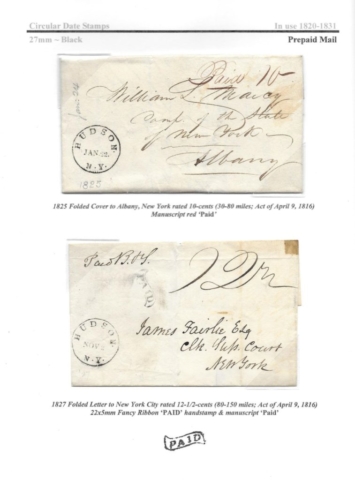 Circular Date Stamps
In use 1820-1831
27mm ~ Black
Prepaid Mail
Paid 10
William L. Marcy
Comp of the State
of New York
Albany
HUDSON
JAN 22
N.Y.
1825
1825 Folded Cover to Albany, New York rated 10-cents (30-80 miles; Act of April 9, 1816)
Manuscript red 'Paid'
Paid
PAID
HUDSON
NOV
N.Y.
James Fairlie Esq
Clk. Sup. Court
New York
1827 Folded Letter to New York City rated 12-1/2-cents (80-150 miles; Act of April 9, 1816)
22x5mm Fancy Ribbon 'PAID' handstamp & manuscript 'Paid'
PAID